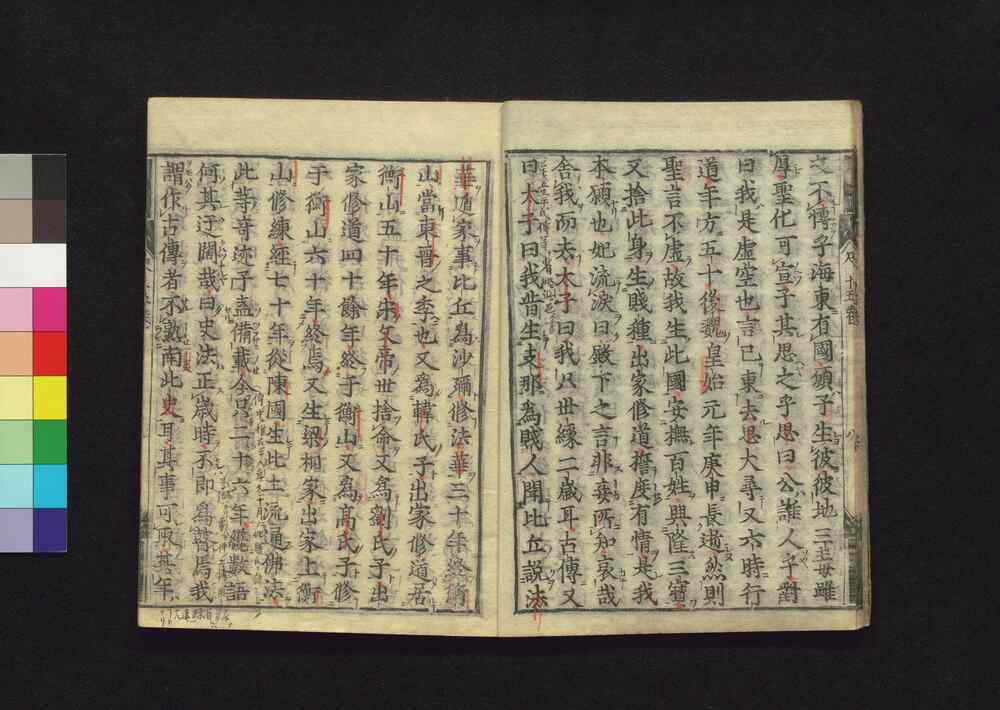 之不傳乎海東有國願子生彼彼地三吉毋雖
厚聖化可宣子其思之乎思曰公誰人乎對
曰我是虛空也言已東去思大尋又六時行
道年方五十後魏皇始元年庚申長逝然則
聖言不虛故我生此國安撫百姓興隆三寶
又捨此身生賤種出家修道擔度有情是我
本願也妃流淚曰殿下之言非妾所知哀哉
舍我而去太子曰我八世緣二歲耳古傳又
曰太子曰我昔生支那為賤人聞比丘說法
華道家事比丘為沙彌修法華三十年終衡
山當東晉之季也又為韓氏子出家修道居
衡山五十年宋文帝世捨命又為劉氏子出
家修道四十餘年終于衡山又為高氏子修
于衡山六十年終焉又生梁相家出家上衡
山修練經七十年從陳國生此土流通佛法
此等奇迹子盍備載余只二十六年繞數語
何其迂闊哉曰史法正歲時不即為贅焉我
謂作古傳者不熟南北史耳其事可取其年